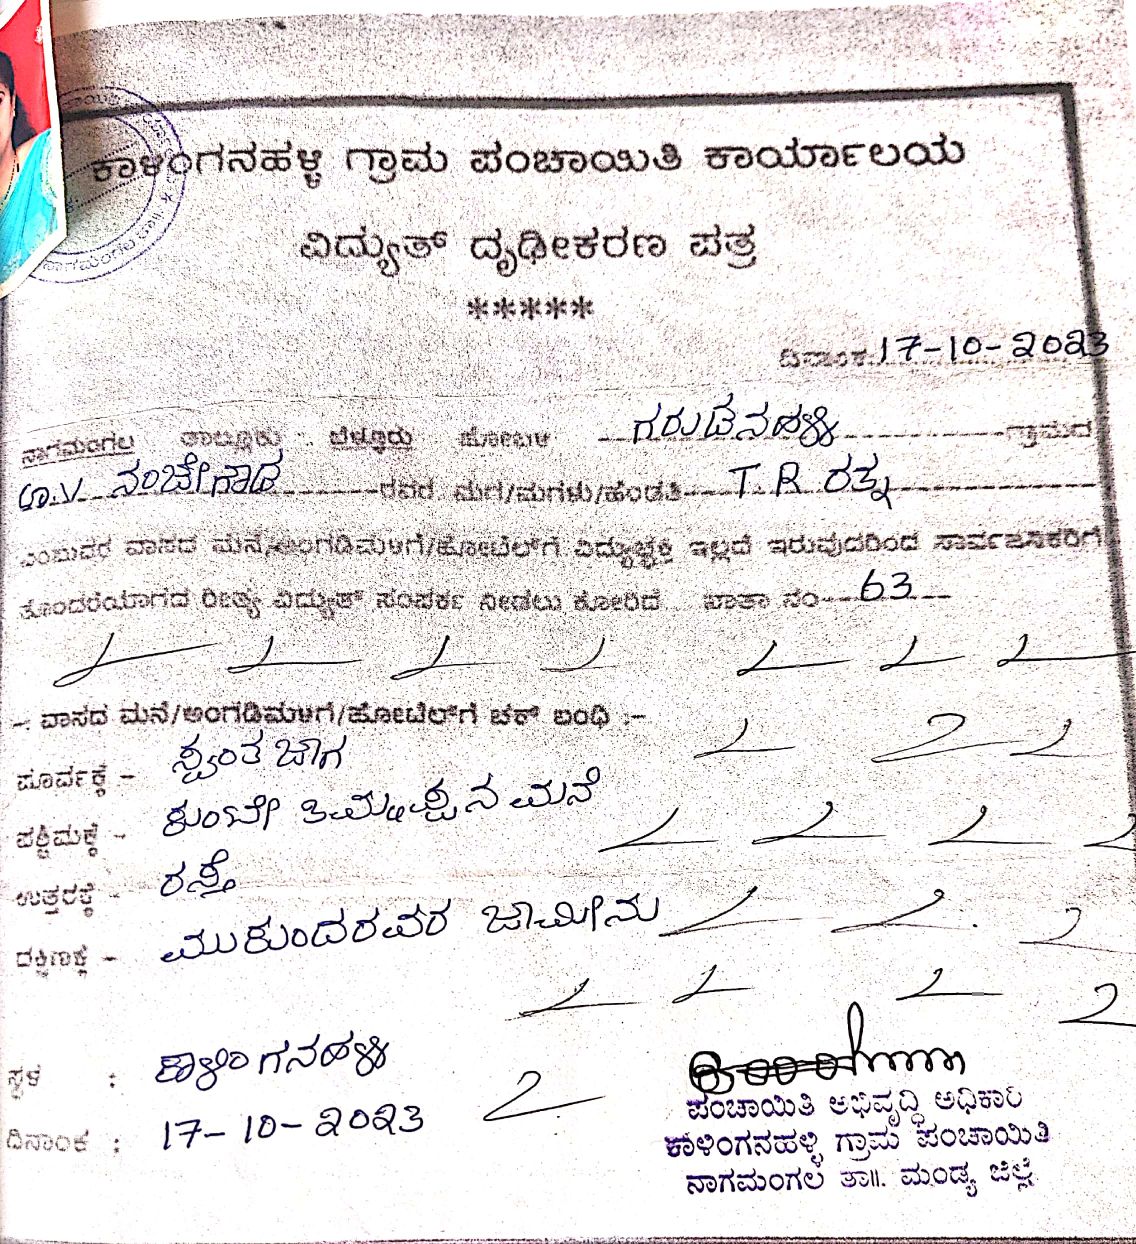 ಕಾಳಿಂಗನಹಳ್ಳಿ ಗ್ರಾಮ ಪಂಚಾಯಿತಿ ಕಾರ್ಯಾಲಯ
ವಿದ್ಯುತ್ ದೃಢೀಕರಣ ಪತ್ರ
*****
ದಿನಾಂಕ: 17-10-2023
ನಾಗಮಂಗಲ ತಾಲ್ಲೂಕು ಬೆಳ್ಳೂರು ಹೋಬಳಿ ಗರುಡನಹಳ್ಳಿ ಗ್ರಾಮದ
ನಂಜೇಗೌಡ ರವರ ಮಗ/ಮಗಳು/ಹೆಂಡತಿ T. R ರತ್ನ
ಎಂಬುವರ ವಾಸದ ಮನೆ/ಅಂಗಡಿಮಳಿಗೆ/ಹೋಟೆಲ್‌ಗೆ ವಿದ್ಯುಚ್ಛಕ್ತಿ ಇಲ್ಲದೆ ಇರುವುದರಿಂದ ಸಾರ್ವಜನಿಕರಿಗೆ
ತೊಂದರೆಯಾಗದ ರೀತ್ಯ ವಿದ್ಯುತ್ ಸಂಪರ್ಕ ನೀಡಲು ಕೋರಿದೆ. ಖಾತಾ ನಂ 63
-: ವಾಸದ ಮನೆ/ಅಂಗಡಿಮಳಿಗೆ/ಹೋಟೆಲ್‌ಗೆ ಚಕ್ ಬಂಧಿ :-
ಪೂರ್ವಕ್ಕೆ - ಸ್ವಂತ ಜಾಗ
ಪಶ್ಚಿಮಕ್ಕೆ - ತಿಮ್ಮಪ್ಪನ ಮನೆ
ಉತ್ತರಕ್ಕೆ - ರಸ್ತೆ
ದಕ್ಷಿಣಕ್ಕೆ - ಮುಕುಂದರವರ ಜಾಮೀನು
ಸ್ಥಳ : ಕಾಳಿಂಗನಹಳ್ಳಿ
ದಿನಾಂಕ : 17-10-2023
ಪಂಚಾಯಿತಿ ಅಭಿವೃದ್ಧಿ ಅಧಿಕಾರಿ
ಕಾಳಿಂಗನಹಳ್ಳಿ ಗ್ರಾಮ ಪಂಚಾಯಿತಿ
ನಾಗಮಂಗಲ ತಾ||. ಮಂಡ್ಯ ಜಿಲ್ಲೆ